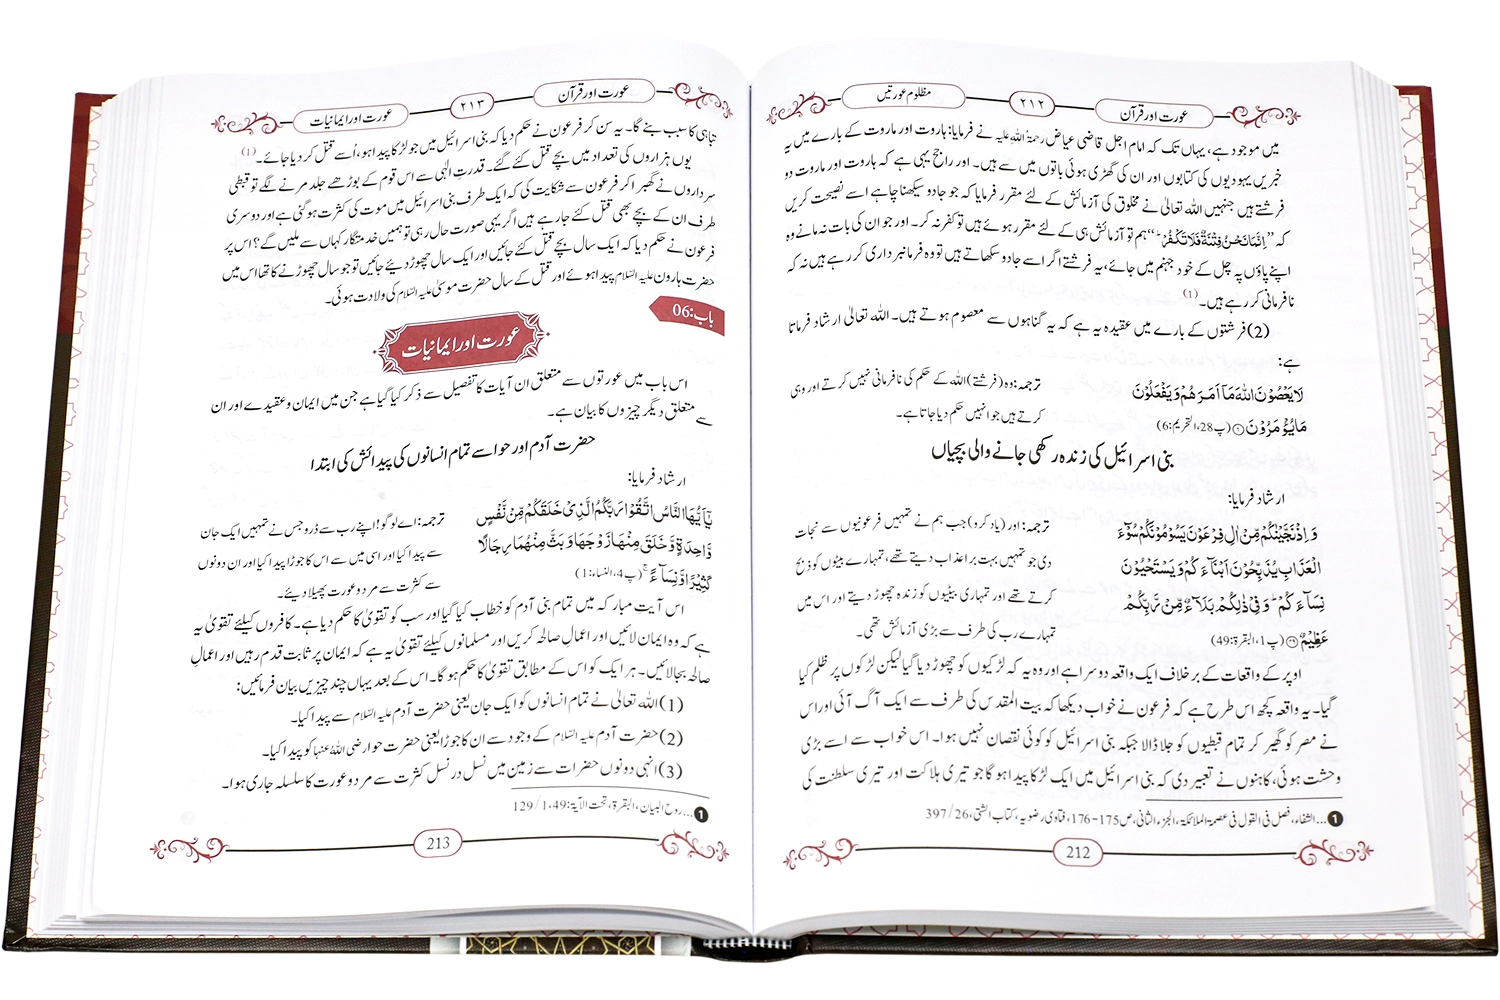 عورت اور قرآن
٢١٢
مظلوم عورتیں
میں موجود ہے، یہاں تک کہ امام اجل قاضی عیاض رحمۃ اللہ علیہ نے فرمایا: ہاروت اور ماروت کے بارے میں یہ
خبریں یہودیوں کی کتابوں اور ان کی گھڑی ہوئی باتوں میں سے ہیں۔ اور راجح یہی ہے کہ ہاروت اور ماروت دو
فرشتے ہیں جنہیں اللہ تعالیٰ نے مخلوق کی آزمائش کے لئے مقرر فرمایا کہ جو جادو سیکھنا چاہے اسے نصیحت کریں
کہ ”اِنَّمَا نَحْنُ فِتْنَةٌ فَلَا تَكْفُرْ ؕ“ ہم تو آزمائش ہی کے لئے مقرر ہوئے ہیں تو کفر نہ کر۔ اور جو ان کی بات نہ مانے وہ
اپنے پاؤں پہ چل کے خود جہنم میں جائے، یہ فرشتے اگر اسے جادو سکھاتے ہیں تو وہ فرمانبرداری کر رہے ہیں نہ کہ
نافرمانی کر رہے ہیں۔ (1)
(2) فرشتوں کے بارے میں عقیدہ یہ ہے کہ یہ گناہوں سے معصوم ہوتے ہیں۔ اللہ تعالیٰ ارشاد فرماتا
ہے:
لَا یَعْصُوْنَ اللّٰهَ مَاۤ اَمَرَهُمْ وَ یَفْعَلُوْنَ
مَا یُؤْمَرُوْنَ ۝۶ (پ28، التحریم:6)
ترجمہ: وہ (فرشتے) اللہ کے حکم کی نافرمانی نہیں کرتے اور وہی
کرتے ہیں جو انہیں حکم دیا جاتا ہے۔
بنی اسرائیل کی زندہ رکھی جانے والی بچیاں
ارشاد فرمایا:
وَ اِذْ نَجَّیْنٰكُمْ مِّنْ اٰلِ فِرْعَوْنَ یَسُوْمُوْنَكُمْ سُوْٓءَ
الْعَذَابِ یُذَبِّحُوْنَ اَبْنَآءَكُمْ وَ یَسْتَحْیُوْنَ
نِسَآءَكُمْ ؕ وَ فِیْ ذٰلِكُمْ بَلَآءٌ مِّنْ رَّبِّكُمْ
عَظِیْمٌ ۝۴۹ (پ1، البقرۃ:49)
ترجمہ: اور (یاد کرو) جب ہم نے تمہیں فرعونیوں سے نجات
دی جو تمہیں بہت برا عذاب دیتے تھے، تمہارے بیٹوں کو ذبح
کرتے تھے اور تمہاری بیٹیوں کو زندہ چھوڑ دیتے اور اس میں
تمہارے رب کی طرف سے بڑی آزمائش تھی۔
اوپر کے واقعات کے برخلاف ایک واقعہ دوسرا ہے اور وہ یہ کہ لڑکیوں کو چھوڑ دیا گیا لیکن لڑکوں پر ظلم کیا
گیا۔ یہ واقعہ کچھ اس طرح ہے کہ فرعون نے خواب دیکھا کہ بیت المقدس کی طرف سے ایک آگ آئی اور اس
نے مصر کو گھیر کر تمام قبطیوں کو جلا ڈالا جبکہ بنی اسرائیل کو کوئی نقصان نہیں ہوا۔ اس خواب سے اسے بڑی
وحشت ہوئی، کاہنوں نے تعبیر دی کہ بنی اسرائیل میں ایک لڑکا پیدا ہو گا جو تیری ہلاکت اور تیری سلطنت کی
1 ... الشفاء، فصل فی القول فی عصمۃ الملائکۃ، الجزء الثانی، ص 175-176، فتاوی رضویہ، کتاب الشتی، 26/397
212
عورت اور قرآن
٢١٣
عورت اور ایمانیات
تباہی کا سبب بنے گا۔ یہ سن کر فرعون نے حکم دیا کہ بنی اسرائیل میں جو لڑکا پیدا ہو، اُسے قتل کر دیا جائے۔ (1)
یوں ہزاروں کی تعداد میں بچے قتل کئے گئے۔ قدرتِ الٰہی سے اس قوم کے بوڑھے جلد مرنے لگے تو قبطی
سرداروں نے گھبرا کر فرعون سے شکایت کی کہ ایک طرف بنی اسرائیل میں موت کی کثرت ہو گئی ہے اور دوسری
طرف ان کے بچے بھی قتل کئے جا رہے ہیں اگر یہی صورت حال رہی تو ہمیں خدمتگار کہاں سے ملیں گے؟ اس پر
فرعون نے حکم دیا کہ ایک سال بچے قتل کئے جائیں اور ایک سال چھوڑ دیئے جائیں تو جو سال چھوڑنے کا تھا اس میں
حضرت ہارون علیہ السّلام پیدا ہوئے اور قتل کے سال حضرت موسیٰ علیہ السّلام کی ولادت ہوئی۔
باب:06
عورت اور ایمانیات
اس باب میں عورتوں سے متعلق ان آیات کا تفصیل سے ذکر کیا گیا ہے جن میں ایمان و عقیدے اور ان
سے متعلق دیگر چیزوں کا بیان ہے۔
حضرت آدم اور حوا سے تمام انسانوں کی پیدائش کی ابتدا
ارشاد فرمایا:
یٰۤاَیُّهَا النَّاسُ اتَّقُوْا رَبَّكُمُ الَّذِیْ خَلَقَكُمْ مِّنْ نَّفْسٍ
وَّاحِدَةٍ وَّ خَلَقَ مِنْهَا زَوْجَهَا وَ بَثَّ مِنْهُمَا رِجَالًا
كَثِیْرًا وَّ نِسَآءً ۚ (پ4، النساء:1)
ترجمہ: اے لوگو! اپنے رب سے ڈرو جس نے تمہیں ایک جان
سے پیدا کیا اور اسی میں سے اس کا جوڑا پیدا کیا اور ان دونوں
سے کثرت سے مرد و عورت پھیلا دیئے۔
اس آیتِ مبارکہ میں تمام بنی آدم کو خطاب کیا گیا اور سب کو تقویٰ کا حکم دیا ہے۔ کافروں کیلئے تقویٰ یہ
ہے کہ وہ ایمان لائیں اور اعمالِ صالحہ کریں اور مسلمانوں کیلئے تقویٰ یہ ہے کہ ایمان پر ثابت قدم رہیں اور اعمالِ
صالحہ بجا لائیں۔ ہر ایک کو اس کے مطابق تقویٰ کا حکم ہو گا۔ اس کے بعد یہاں چند چیزیں بیان فرمائیں:
(1) اللہ تعالیٰ نے تمام انسانوں کو ایک جان یعنی حضرت آدم علیہ السّلام سے پیدا کیا۔
(2) حضرت آدم علیہ السّلام کے وجود سے ان کا جوڑا یعنی حضرت حوا رضی اللہُ عنہا کو پیدا کیا۔
(3) انہی دونوں حضرات سے زمین میں نسل در نسل کثرت سے مرد و عورت کا سلسلہ جاری ہوا۔
1 ... روح البیان، البقرۃ، تحت الآیۃ:49، 1/129
213